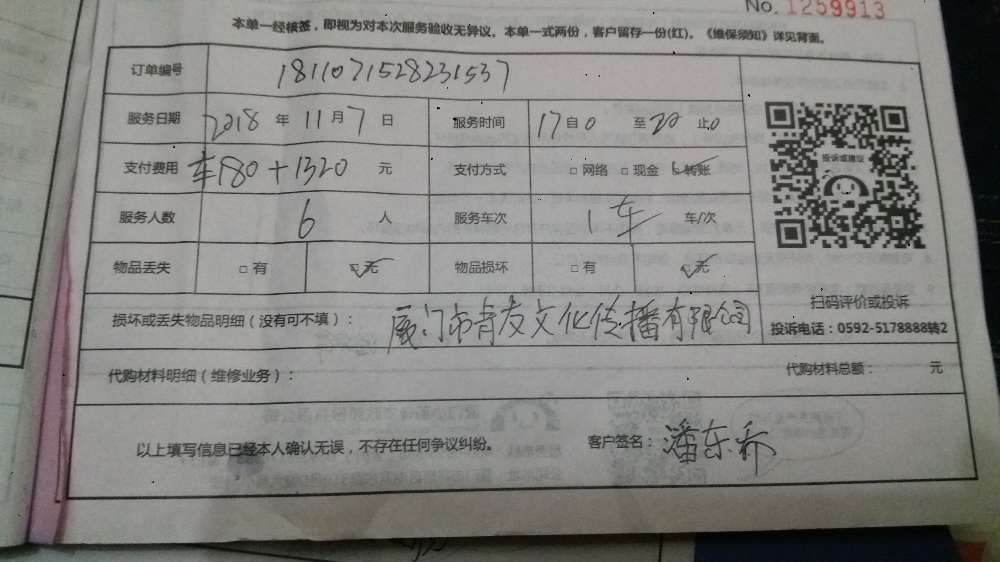 No. 1259913
本单一经核签，即视为对本次服务验收无异议。本单一式两份，客户留存一份(红)。《维保须知》详见背面。
订单编号 1811071528231537
服务日期 2018 年 11 月 7 日 服务时间 17 自 0 至 20 止 0
支付费用 车180+1320 元 支付方式 □ 网络 □ 现金 ☑ 转账
投诉或建议
服务人数 6 人 服务车次 1车 车/次
物品丢失 □ 有 ☑ 无 物品损坏 □ 有 ☑ 无
扫码评价或投诉
损坏或丢失物品明细（没有可不填）： 厦门市青友文化传播有限公司
投诉电话：0592-5178888转2
代购材料明细（维修业务）： 代购材料总额： 元
以上填写信息已经本人确认无误，不存在任何争议纠纷。 客户签名： 潘东乔